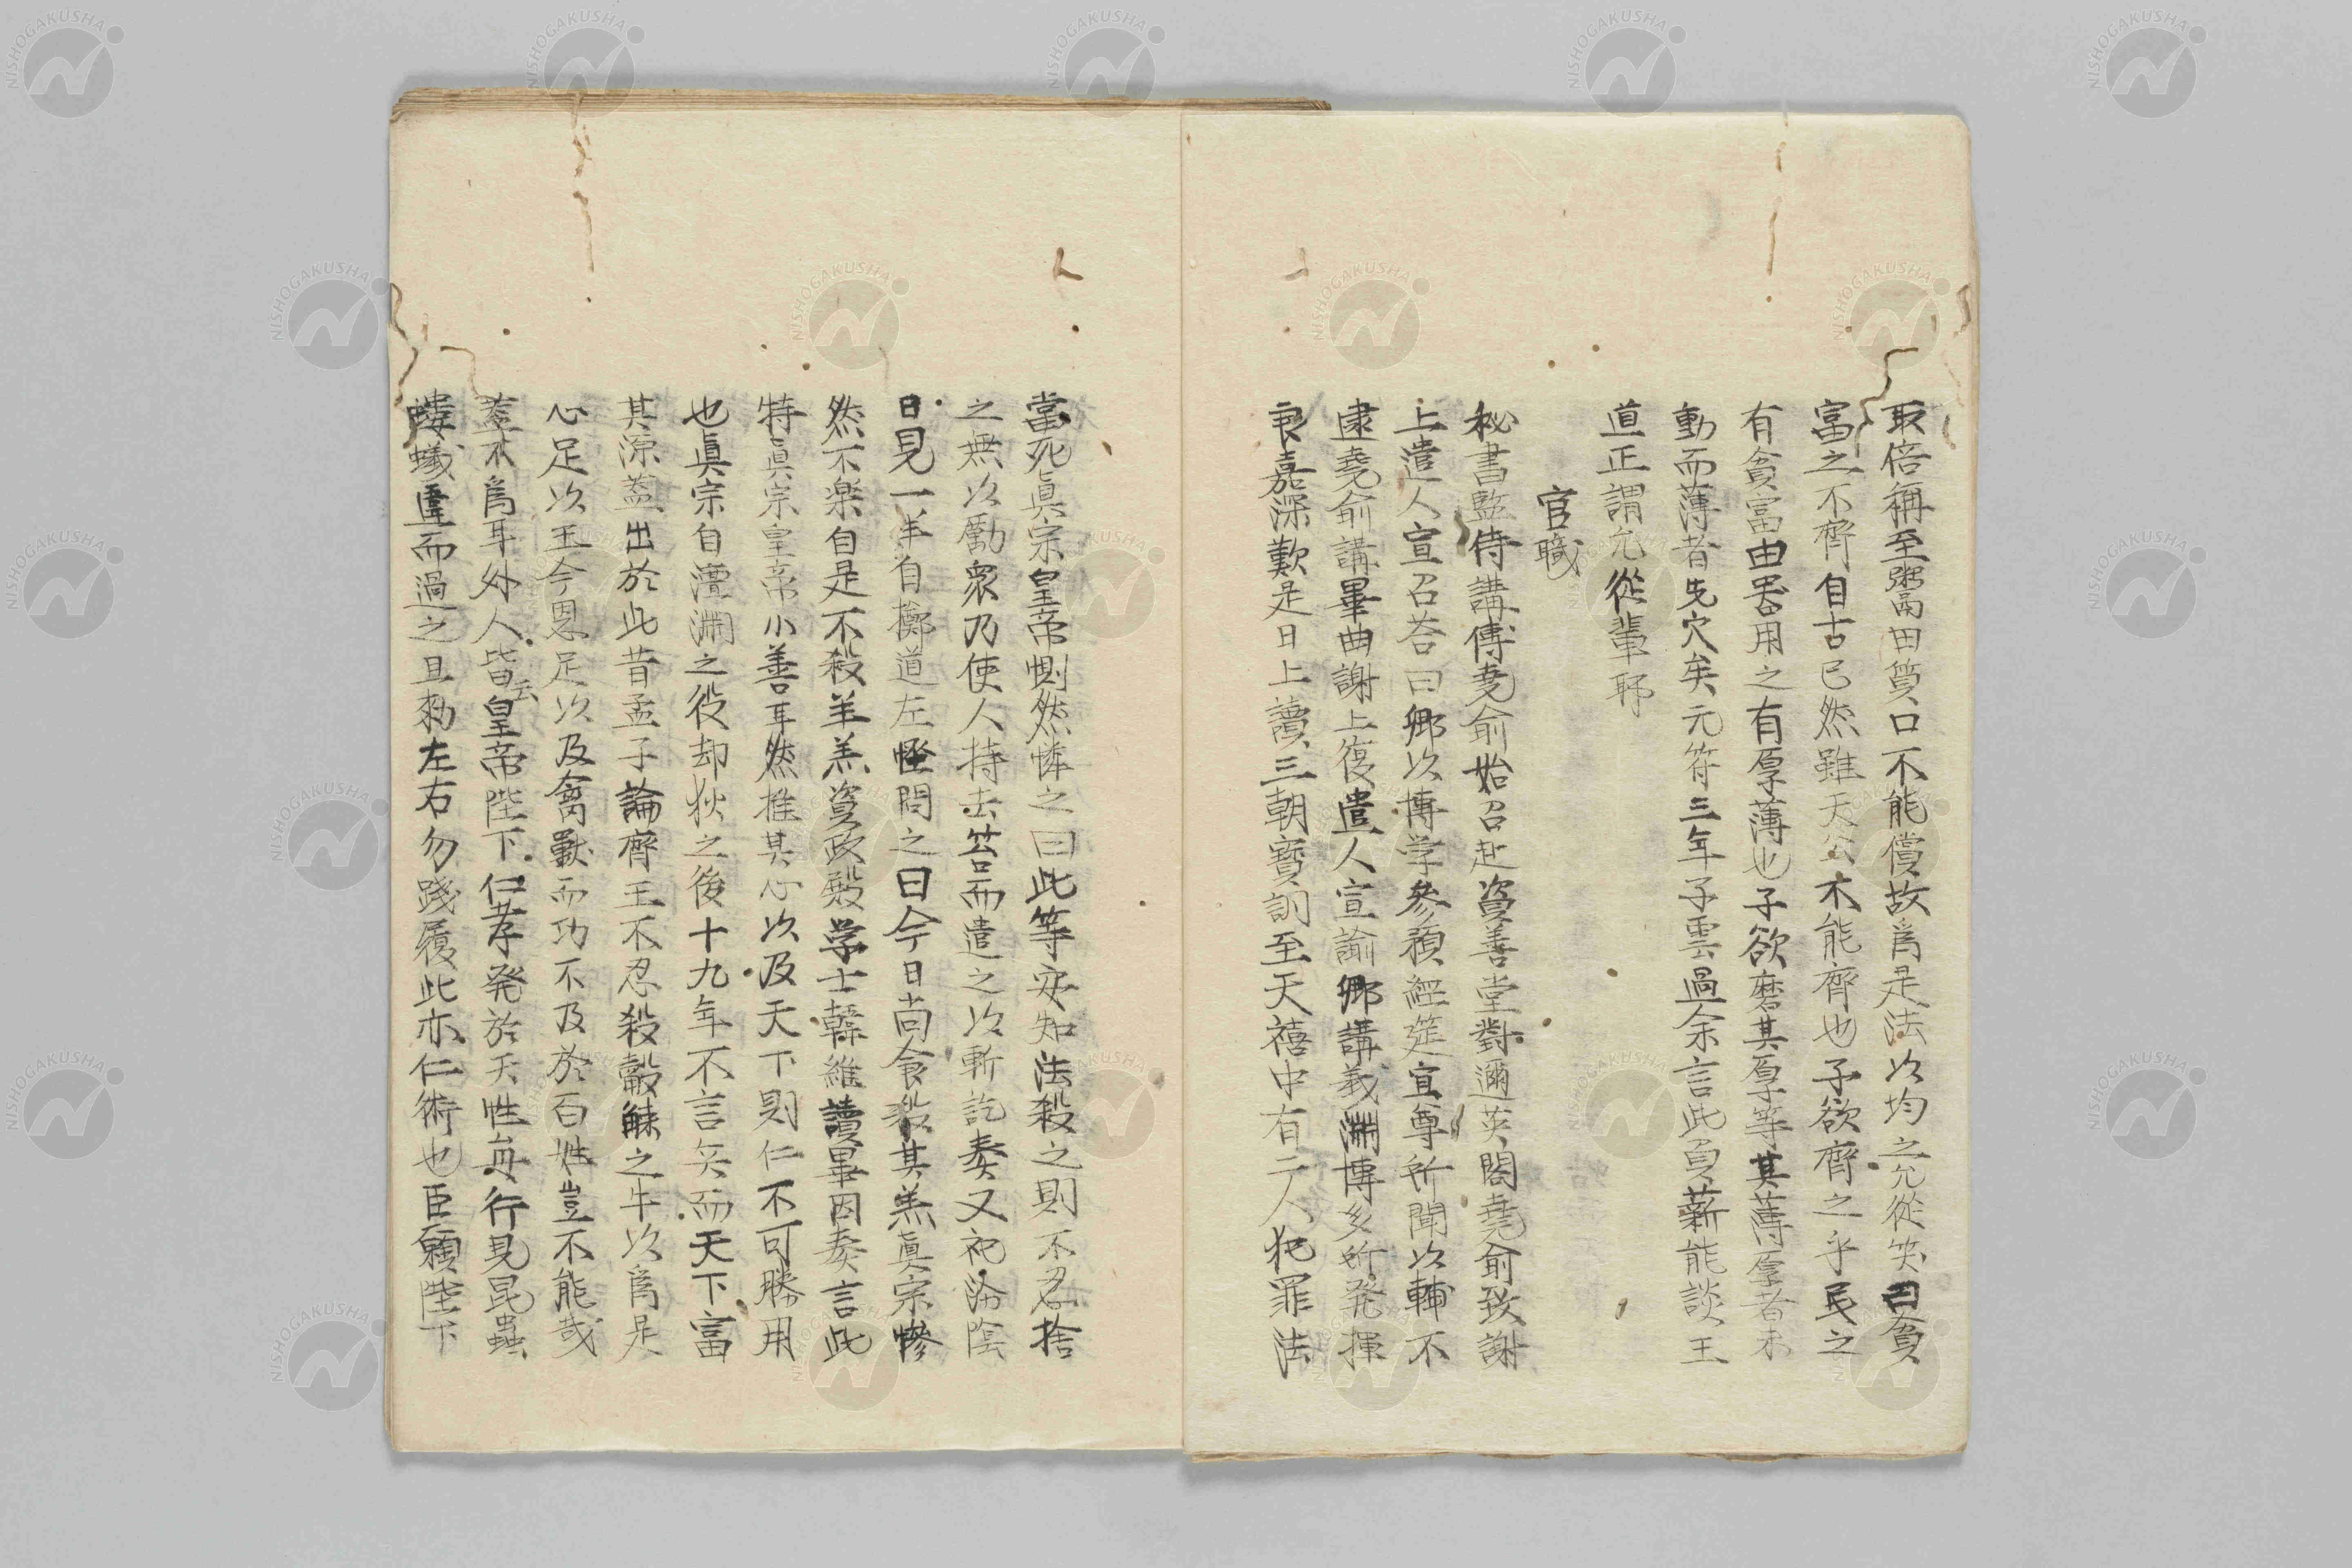 取倍称至鬻田質口不能償故爲是法以均之允從笑曰貧
富之不齊自古已然雖天公不能齊也子欲齊之乎民之
有貧富由器用之有厚薄也子欲磨其厚等其薄厚者未
動而薄者先穴矣元符三年子雲過余言此負薪能談王
道正謂允從輩耶
官職
秘書監侍講傅堯俞始召赴資善堂對邇英閣堯俞致謝
上遣人宣召荅曰卿以博学參預經筵宜尊所聞以輔不
逮堯俞講畢曲謝上復遣人宣諭卿講義淵博多所発揮
良嘉深歎是日上讀三朝寶訓至天禧中有二人犯罪法
當死眞宗皇帝惻然憐之曰此等安知法殺之則不忍捨
之無以勵衆乃使人持去笞而遣之以斬訖奏又祀汾陰
日見一羊自擲道左怪問之曰今日尚食殺其羔眞宗惨
然不楽自是不殺羊羔資政殿学士韓維讀畢因奏言此
特眞宗皇帝小善耳然推其心以及天下則仁不可勝用
也眞宗自澶淵之役却狄之後十九年不言兵而天下富
其源蓋出於此昔孟子論齊王不忍殺觳觫之牛以爲是
心足以王今恩足以及禽獸而功不及於百姓豈不能哉
蓋不爲耳外人皆云皇帝陛下仁孝発於天性每行見昆蟲
螻蟻違而過之且勅左右勿踐履此亦仁術也臣願陛下
NISHOGAKUSHA